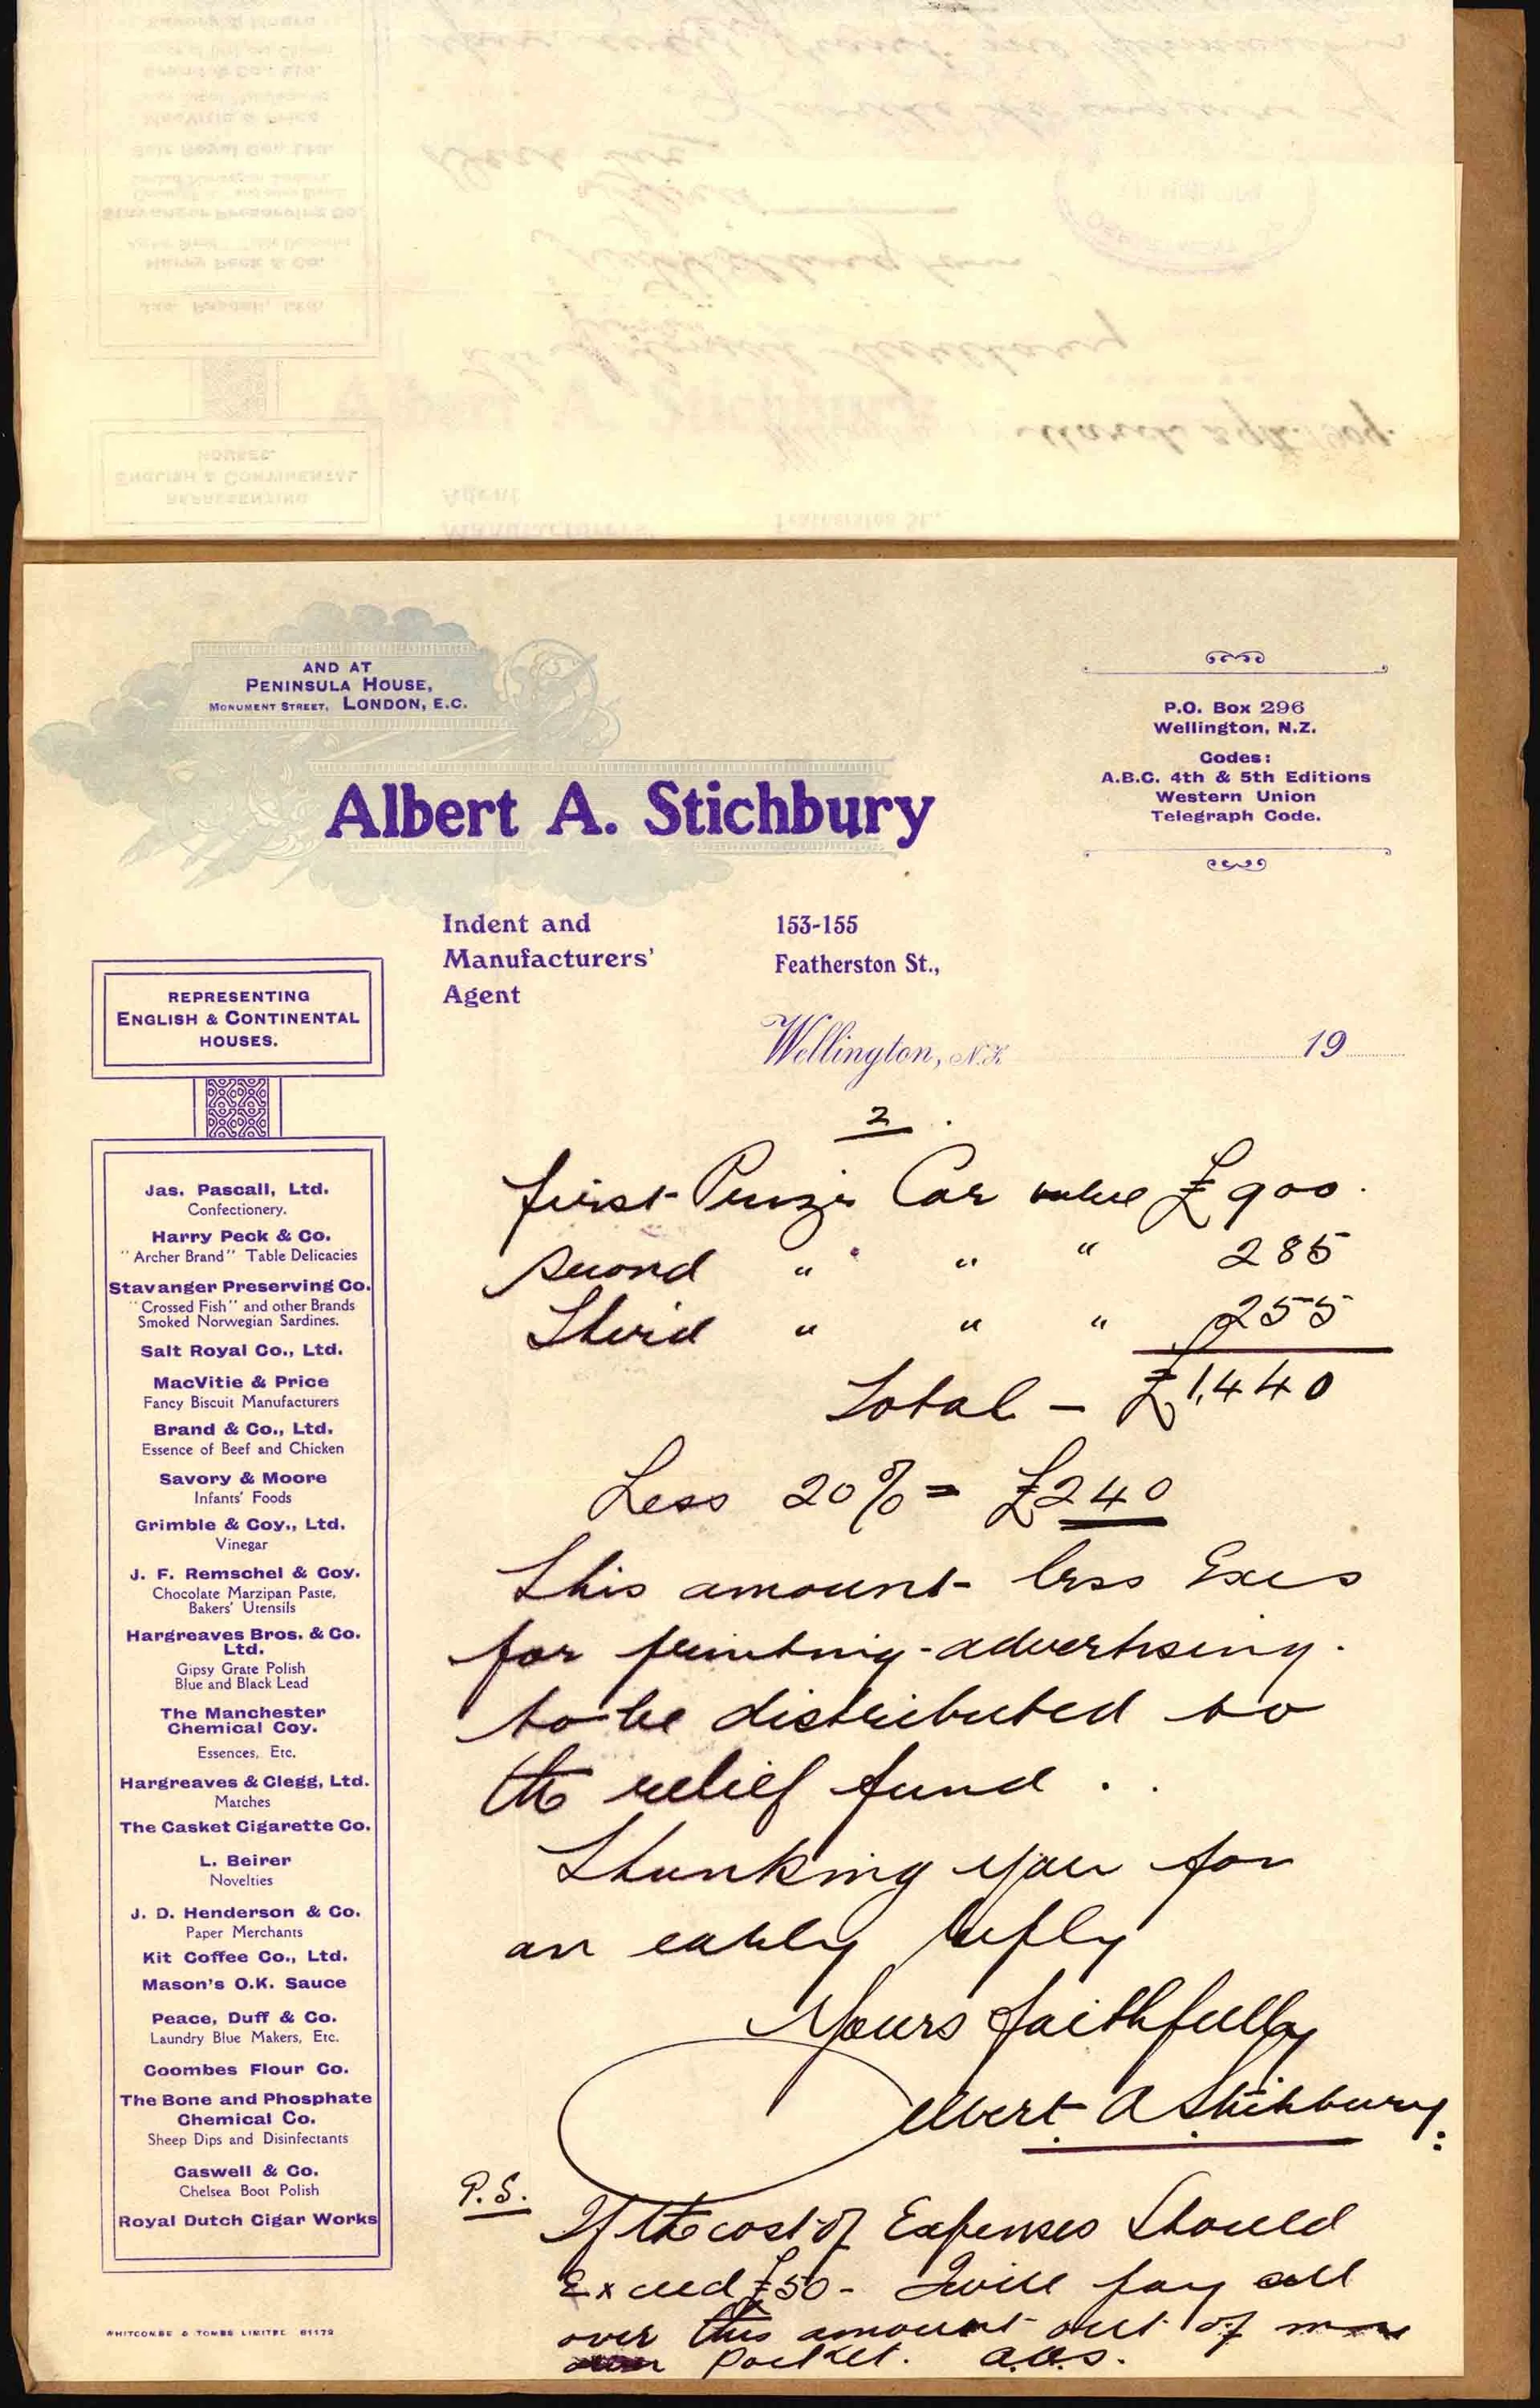 March 29th. 1909.
AND AT
PENINSULA HOUSE,
MONUMENT STREET, LONDON, E.C.
Albert A. Stichbury
P.O. Box 296
Wellington, N.Z.
Codes:
A.B.C. 4th & 5th Editions
Western Union
Telegraph Code.
Indent and
Manufacturers'
Agent
153-155
Featherston St.,
Wellington, N.Z. 19
REPRESENTING
ENGLISH & CONTINENTAL
HOUSES.
Jas. Pascall, Ltd.
Confectionery.
Harry Peck & Co.
"Archer Brand" Table Delicacies
Stavanger Preserving Co.
"Crossed Fish" and other Brands
Smoked Norwegian Sardines.
Salt Royal Co., Ltd.
MacVitie & Price
Fancy Biscuit Manufacturers
Brand & Co., Ltd.
Essence of Beef and Chicken
Savory & Moore
Infants' Foods
Grimble & Coy., Ltd.
Vinegar
J. F. Remschel & Coy.
Chocolate Marzipan Paste,
Bakers' Utensils
Hargreaves Bros. & Co.
Ltd.
Gipsy Grate Polish
Blue and Black Lead
The Manchester
Chemical Coy.
Essences, Etc.
Hargreaves & Clegg, Ltd.
Matches
The Casket Cigarette Co.
L. Beirer
Novelties
J. D. Henderson & Co.
Paper Merchants
Kit Coffee Co., Ltd.
Mason's O.K. Sauce
Peace, Duff & Co.
Laundry Blue Makers, Etc.
Coombes Flour Co.
The Bone and Phosphate
Chemical Co.
Sheep Dips and Disinfectants
Caswell & Co.
Chelsea Boot Polish
Royal Dutch Cigar Works
WHITCOMBE & TOMBS LIMITED 81179
2.
First Prize Car value £900.
Second " " " 285
Third " " " 255
Total - £1,440
Less 20% = £240
This amount less Exes
for printing-advertising.
to be distributed to
the relief fund..
Thanking you for
an early reply
Yours faithfully
Albert A Stichbury.
P.S.
If the cost of Expenses Should
Exceed £50 - I will pay all
over this amount out of my
pocket. A.A.S.